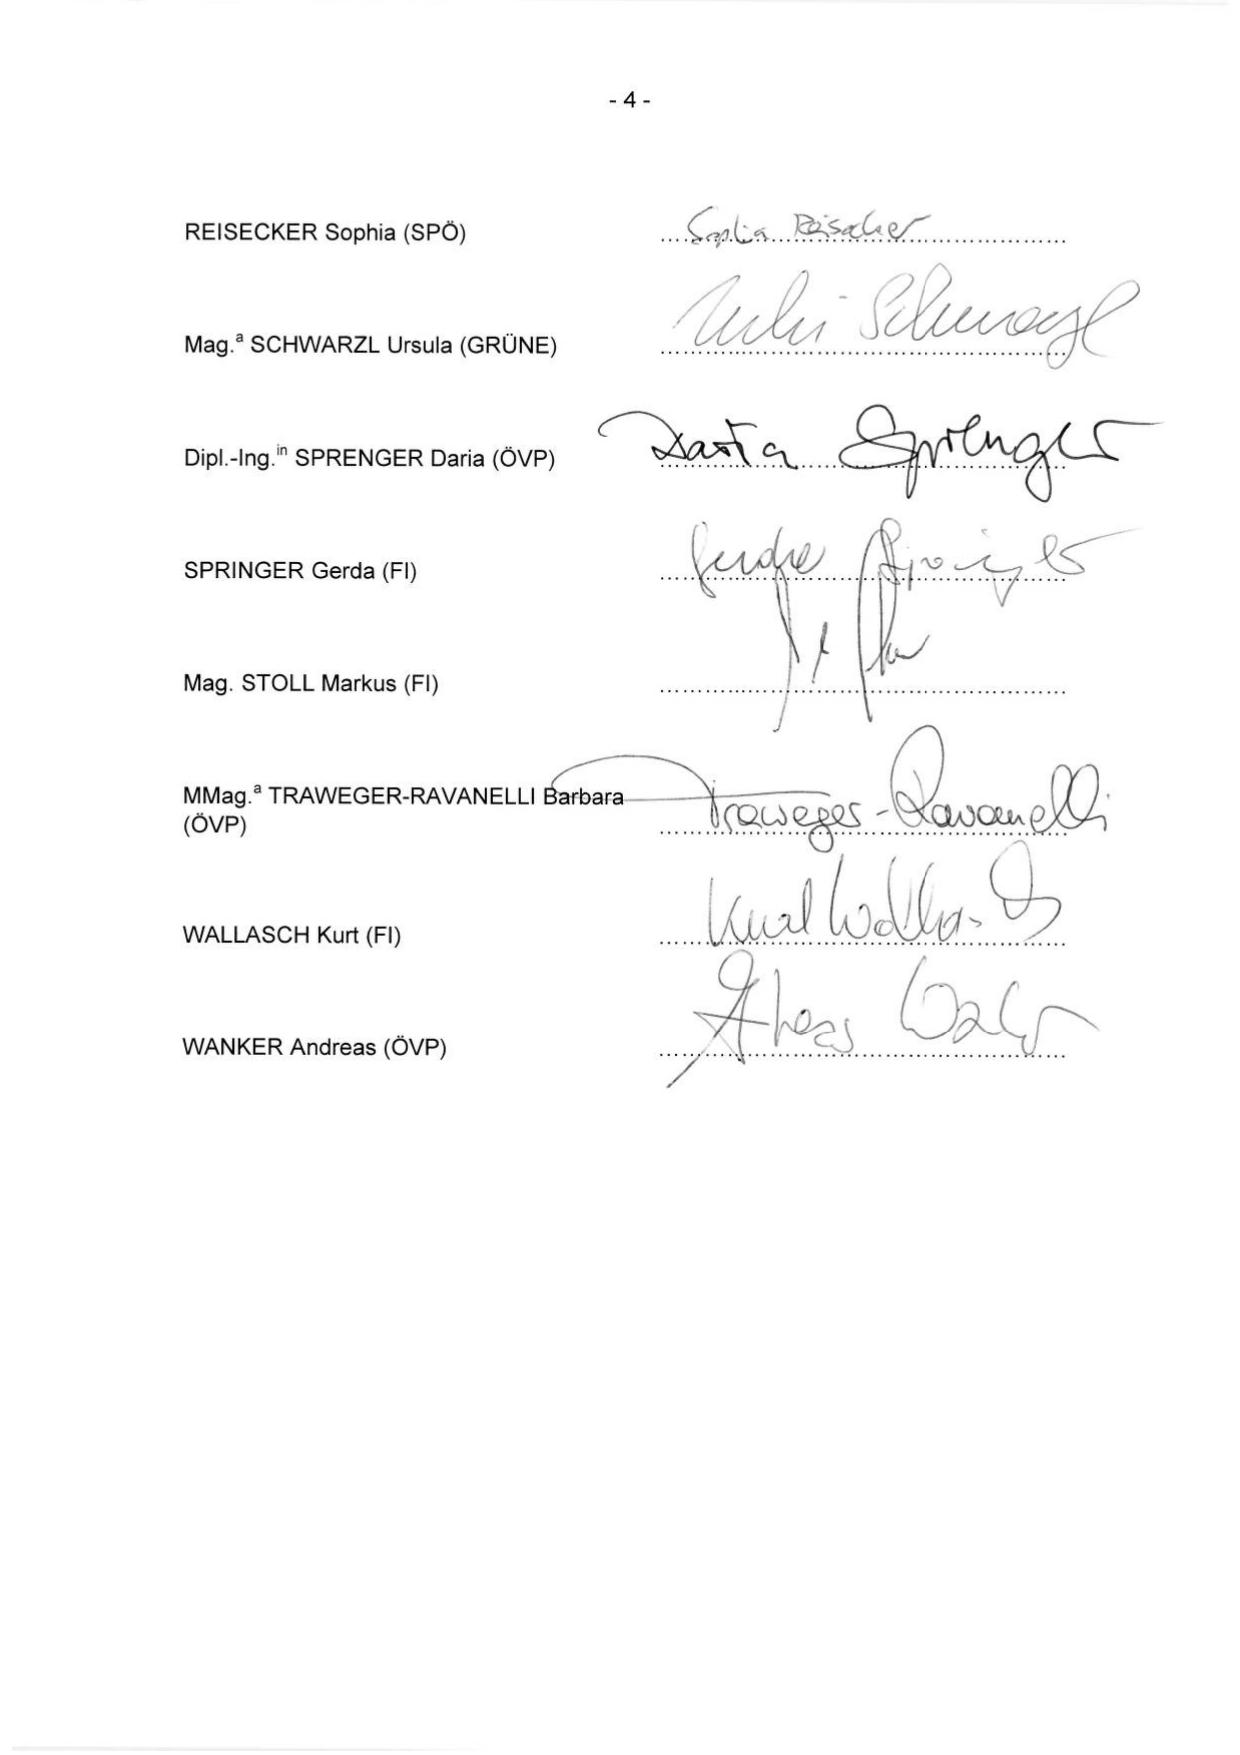 - 4 -
REISECKER Sophia (SPÖ) Sophia Reisecker
Mag.ª SCHWARZL Ursula (GRÜNE) Schwarzl
Dipl.-Ing.ⁱⁿ SPRENGER Daria (ÖVP) Daria Sprenger
SPRINGER Gerda (FI) Gerda Springer
Mag. STOLL Markus (FI)
MMag.ª TRAWEGER-RAVANELLI Barbara Traweger-Ravanelli
(ÖVP)
WALLASCH Kurt (FI) Kurt Wallasch
WANKER Andreas (ÖVP)